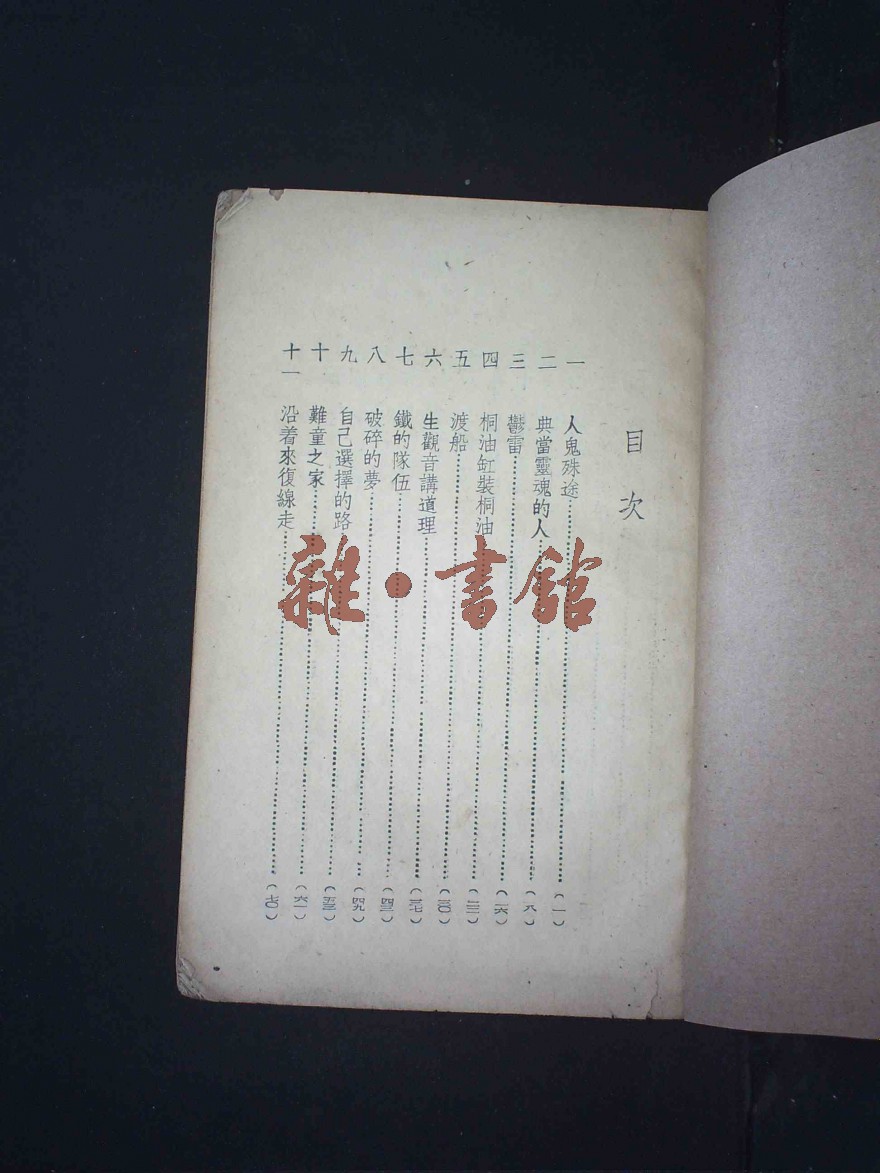 目次
一 人鬼殊途……(一)
二 典當靈魂的人……(八)
三 鬱雷……(一六)
四 桐油缸裝桐油……(二三)
五 渡船……(三〇)
六 生觀音講道理……(三七)
七 鐵的隊伍……(四三)
八 破碎的夢……(四九)
九 自己選擇的路……(五三)
十 難童之家……(六一)
十一 沿着來復線走……(七〇)
雜·書館